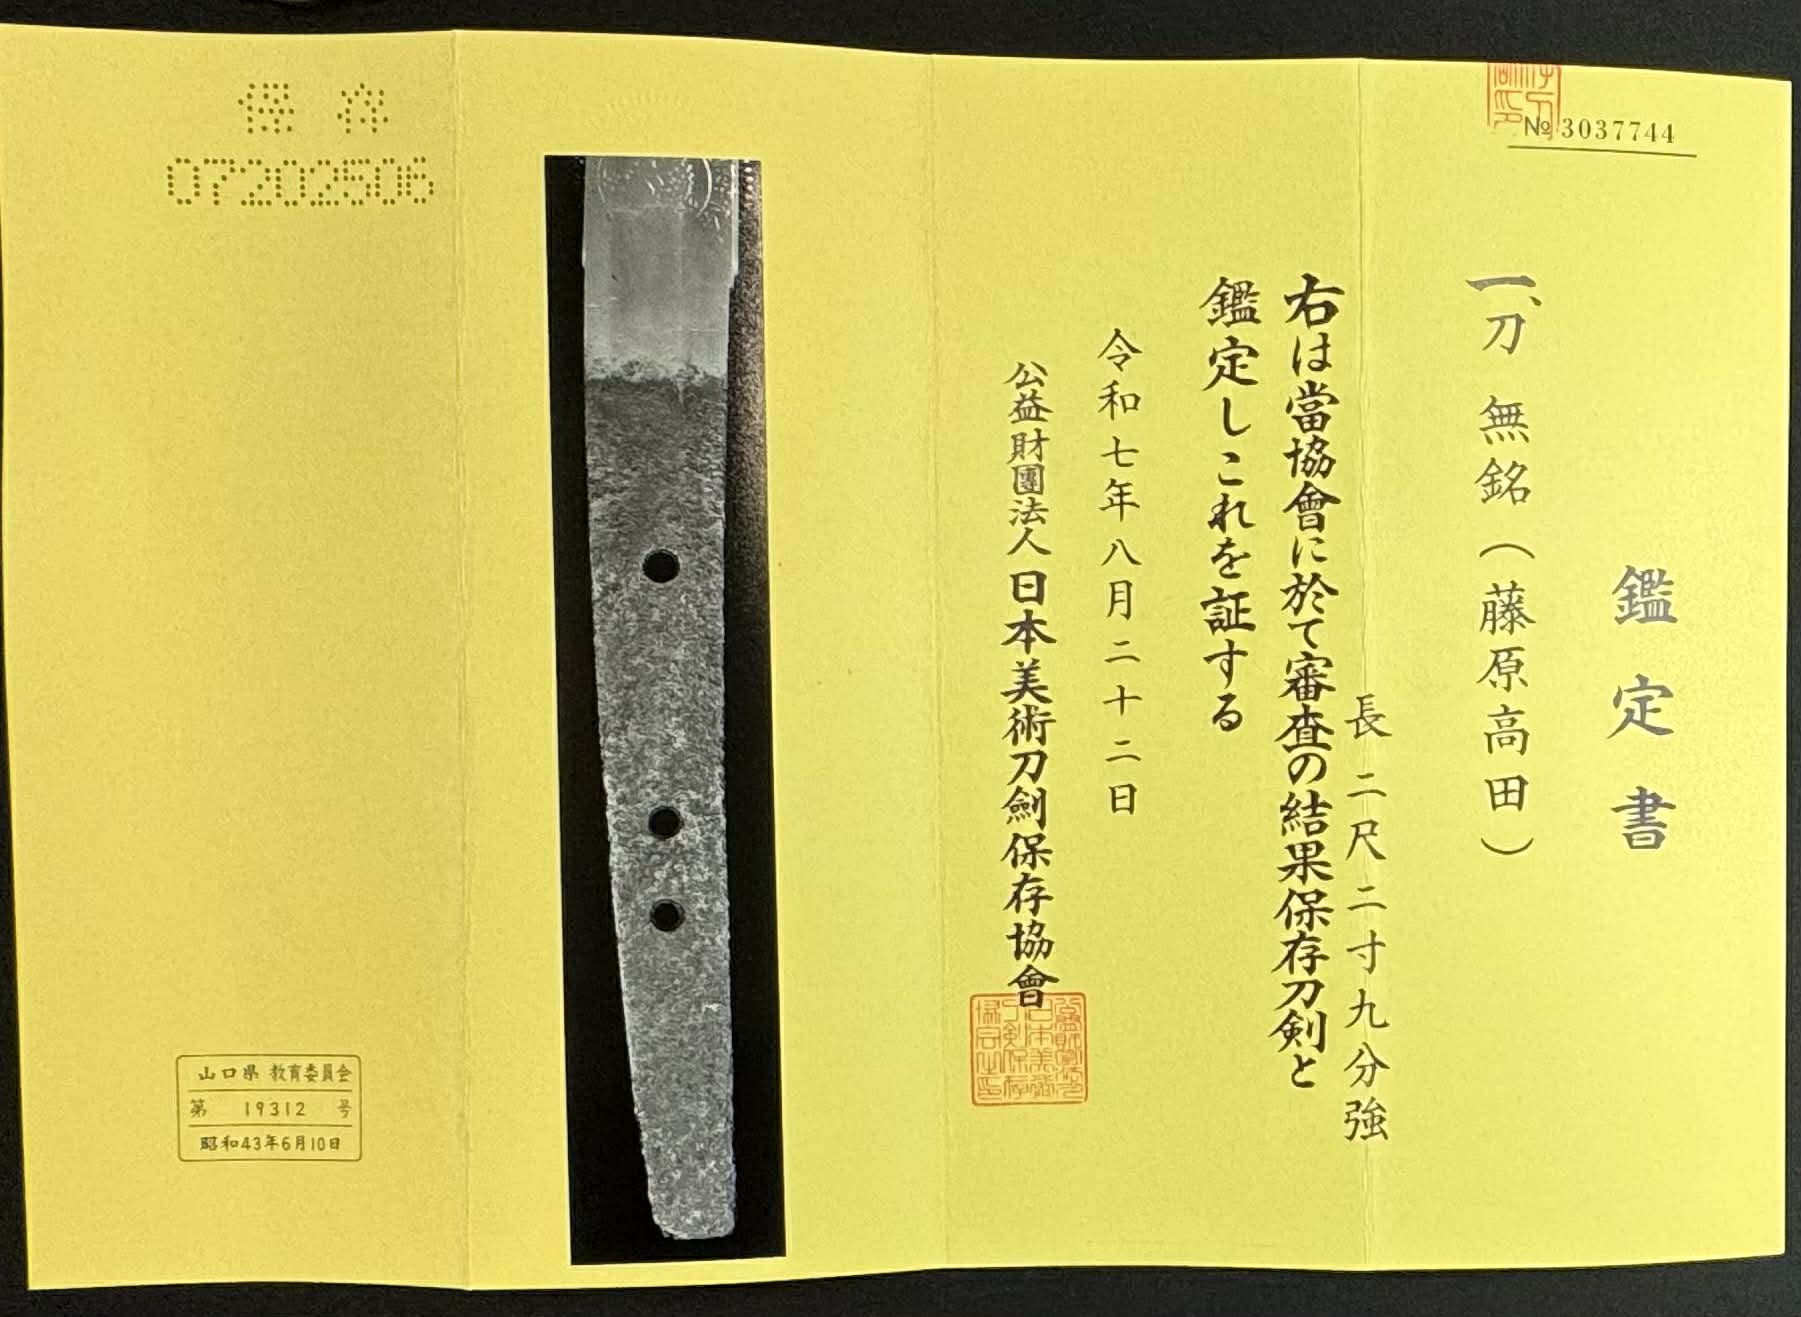 № 3037744
鑑定書
一、刀 無銘（藤原高田）
長 二尺二寸九分強
右は當協會に於て審査の結果保存刀剣と
鑑定しこれを証する
令和七年八月二十二日
公益財團法人日本美術刀劍保存協會
保存
07202506
山口県 教育委員会
第 19312 号
昭和43年6月10日